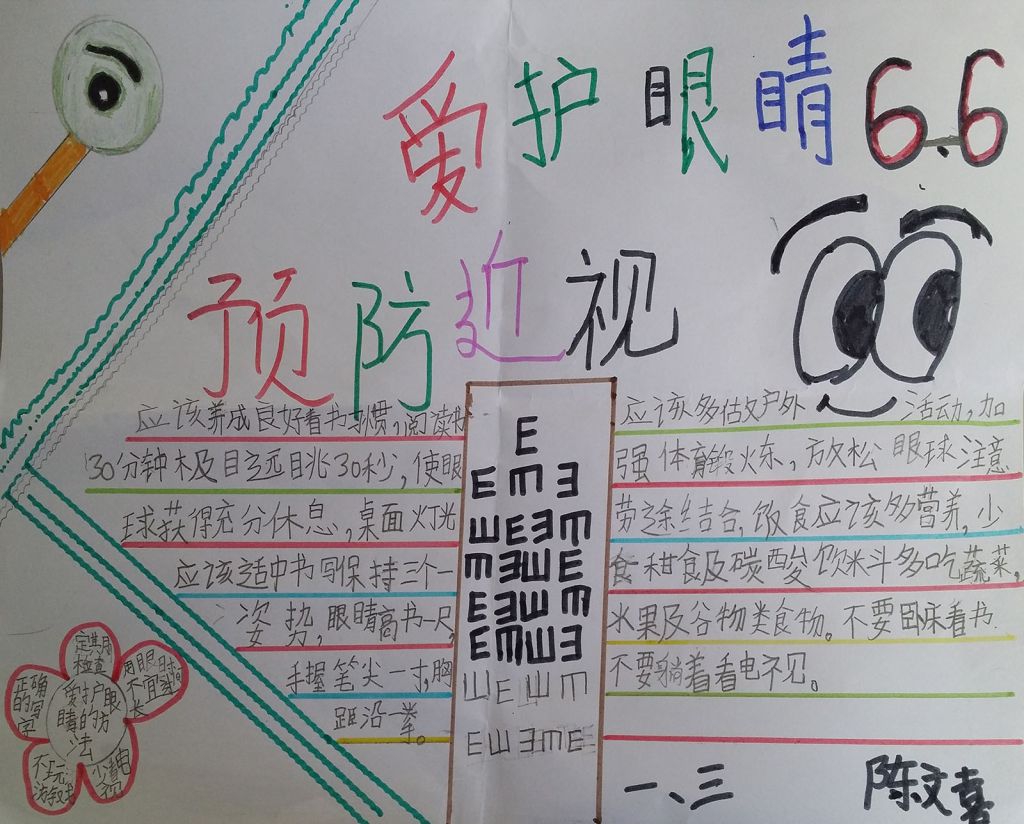 爱护眼睛6.6
预防近视
应该养成良好看书习惯,阅读
30分钟极目远眺30秒,使眼
球获得充分休息,桌面灯光
应该适中书写保持三个一
姿势,眼睛离书一尺,
手握笔尖一寸,胸
距沿一拳。
应该多估文户外活动,加
强体育锻火东,放松眼球注意
劳逸结合,饭食应该多营养,少
食甜食及碳酸饮料多吃蔬菜,
水果及谷物类食物。不要卧床看书.
不要躺着看电视。
E
E M E Ǝ
E Ш E M Ǝ
爱护眼
睛的方
法
定期
检查
用眼时间
不宜
长
正确
的写
字
不玩
游戏
少看电
视
一、三
陈文喜